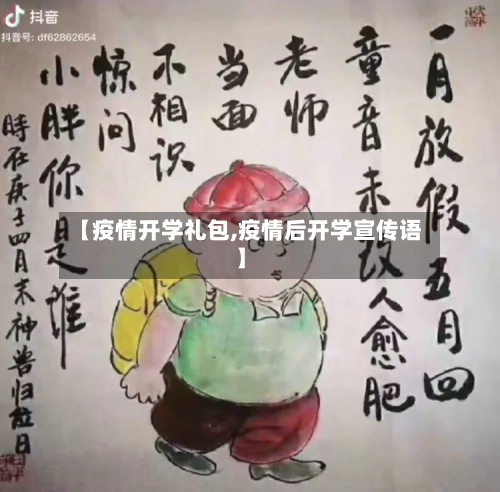 抖音
抖音号: df62862654
一月放假五月回
童音未改人愈肥
老师
当面
不相识
惊问
小胖你是谁
時在庚子四月末神兽归祉日
【疫情开学礼包,疫情后开学宣传语
】